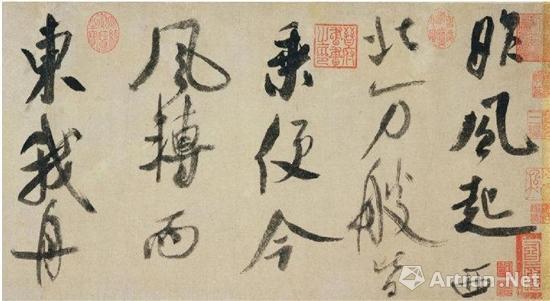 昨風起西
北万艘皆
乘便今
風轉而
東我舟
Artron.Net